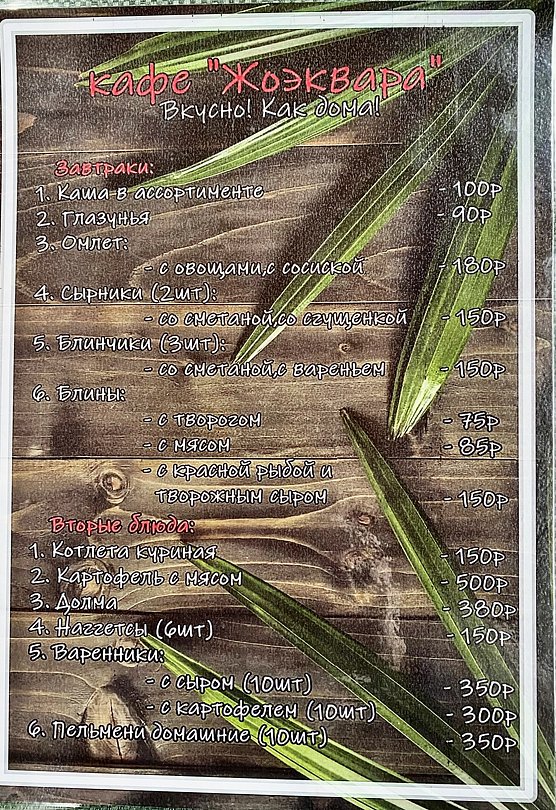 кафе "Жоэквара"
Вкусно! Как дома!
Завтраки:
1. Каша в ассортименте - 100р
2. Глазунья - 90р
3. Омлет:
- с овощами,с сосиской - 180р
4. Сырники (2шт):
- со сметаной,со сгущенкой - 150р
5. Блинчики (3шт):
- со сметаной,с вареньем - 150р
6. Блины:
- с творогом - 75р
- с мясом - 85р
- с красной рыбой и
творожным сыром - 150р
Вторые блюда:
1. Котлета куриная - 150р
2. Картофель с мясом - 500р
3. Долма - 380р
4. Наггетсы (6шт) - 150р
5. Варенники:
- с сыром (10шт) - 350р
- с картофелем (10шт) - 300р
6. Пельмени домашние (10шт) - 350р